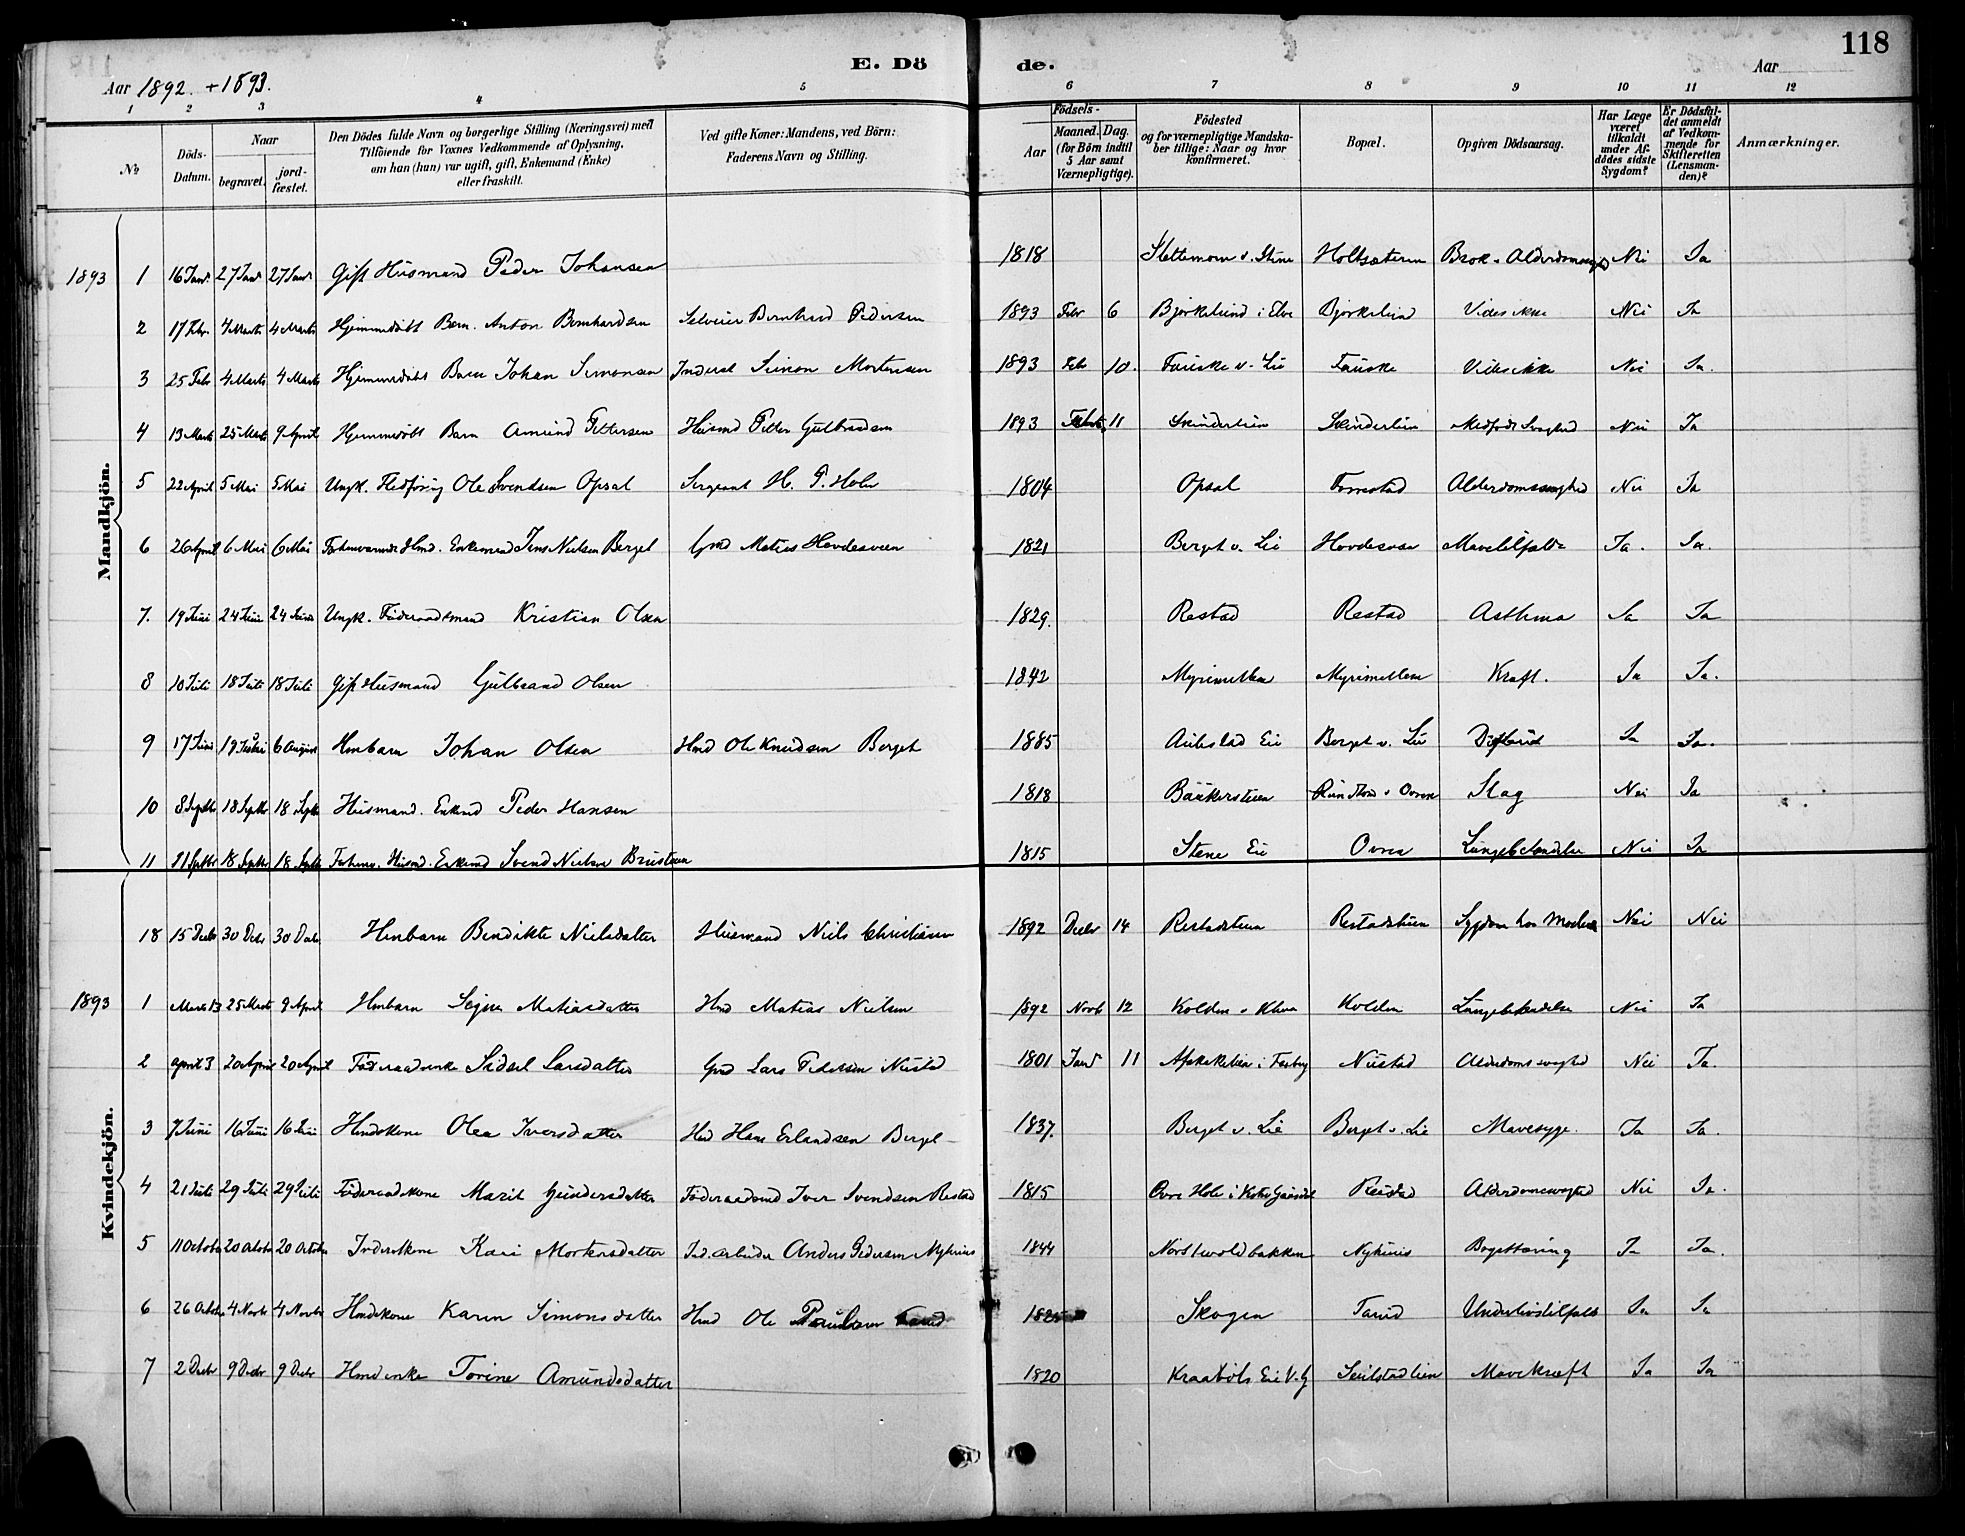 118
E. Dö de.
Aar 1892. + 1893.
Aar
1 2 3 4 5 6 7 8 9 10 11 12
№
Döds-Datum.
Naar
begravet.
jordfæstet.
Den Dödes fulde Navn og borgerlige Stilling (Næringsvei) med Tilföiende for Voxnes Vedkommende af Oplysning, om han (hun) var ugift, gift, Enkemand (Enke) eller fraskilt.
Ved gifte Koner: Mandens, ved Börn: Faderens Navn og Stilling.
Födsels-
Aar
Maaned. Dag.
(for Börn indtil 5 Aar samt Værnepligtige).
Födested og for værnepligtige Mandskaber tillige: Naar og hvor konfirmeret.
Bopæl.
Opgiven Dödsaarsag.
Har Læge været tilkaldt under Afdödes sidste Sygdom?
Er Dödsfaldet anmeldt af Vedkommende for Skifteretten (Lensmanden)?
Anmærkninger.
Mandkjön.
1893 1 16 Janr. 27 Janr 27 Janr. Gift Husmand Peder Johansen 1818 v. Stene Holtsæteren Brok - Alderdomssvaghed Nei Ja
2 17 Febr. 4 Marts 4 Marts Hjemmedöbt Barn. Anton Bernhardsen Selveier Bernhard Pedersen 1893 Febr 6 Björkelund i Björkelund Vides ikke Nei Ja
3 25 Febr 4 Marts 4 Marts Hjemmedöbt Barn Johan Simonsen Inderst Simon Mortensen 1893 Febr 10. Fauske v. Lie Fauske Vides ikke Nei Ja.
4 13 Marts 25 Marts 9 April Hjemmedöbt Barn Amund Pettersen Husmd Petter Gulbrandsen 1893 11 Skinderlien Skinderlien Medfödt Svaghed Nei Ja
5 22 April 5 Mai 5 Mai Ungk. Ole Svendsen Opsal Sergeant H. P. Holm 1804 Opsal Alderdomssvaghed Nei Ja
6 26 April 6 Mai 6 Mai Hmd. Enkemand Jens Nielsen Berget Gmd Matias Hovdesveen 1821 Berget v. Lie Mavetilfælde Ja. Ja.
7. 19 Juni 24 Juni 24 Juni Ungk. Föderaadsmand Kristian Olsen 1829. Restad Restad Asthma Ja Ja
8 10 Juli 18 Juli 18 Juli Gift Husmand Gulbrand Olsen 1842 Myrimellem Myrimellem Kræft. Ja Ja.
9 17 19 6 August Hmbarn Johan Olsen Hmd Ole Knudsen Berget 1885 Aulestad Eie Berget v. Lie Ja Ja.
10 8 Septbr 18 Septbr 18 Septbr Husmand. Enkmd Peder Hansen 1818 Slag Nei Ja
11 11 Septbr 18 Septbr 18 Septbr Husmd. Enkmd Svend Nielsen 1815 Stene Eie Lungebetændelse Nei Ja
Kvindekjön.
18 15 Decbr 30 Decbr 30 Decbr Hmbarn Bendikte Nielsdatter Husmand Niels Christiansen 1892 Decbr 14 Restadstuen Restadstuen Sygdom hos Moderen Nei Nei
1893 1 Marts 13 25 Marts 9 April Hmbarn Signe Matiasdatter Hmd Matias Nielsen 1892 Novb 12 Kolden v Kolden Lungebetændelse Nei Ja
2 April 3 20 April 20 April Föderaadsenke Sidsel Larsdatter Gmd Lars Pedersen Nustad 1801 Janr 11 Nustad Alderdomssvaghed Nei Ja.
3 7 Juni 16 Juni 16 Juni Hmdskone Olea Iversdatter Hmd Hans Erlandsen Berget 1837. Berget v. Lie Berget v. Lie Mavesyge. Ja Ja.
4 21 Juli 29 Juli 29 Juli Föderaadskone Marit Gundersdatter Föderaadsmd Iver Svendsen Restad 1815 Restad Alderdomssvaghed Nei Ja.
5 11 Octobr 20 Octobr 20 Octobr Inderstkone Kari Mortensdatter Ind. arbeider Anders Pedersen Nyhuus 1844 Nyhuus Ja Ja.
6 26 Octobr 4 Novbr 4 Novbr Hmdskone Karen Simonsdatter Hmd Ole Paulsen Skogen Underlivstilfælde Ja Ja
7 2 Decbr 9 Decbr 9 Decbr Hmdenke Torine Amundsdatter 1820 Kraaböls Eie V. G. Mavekræft Ja Ja